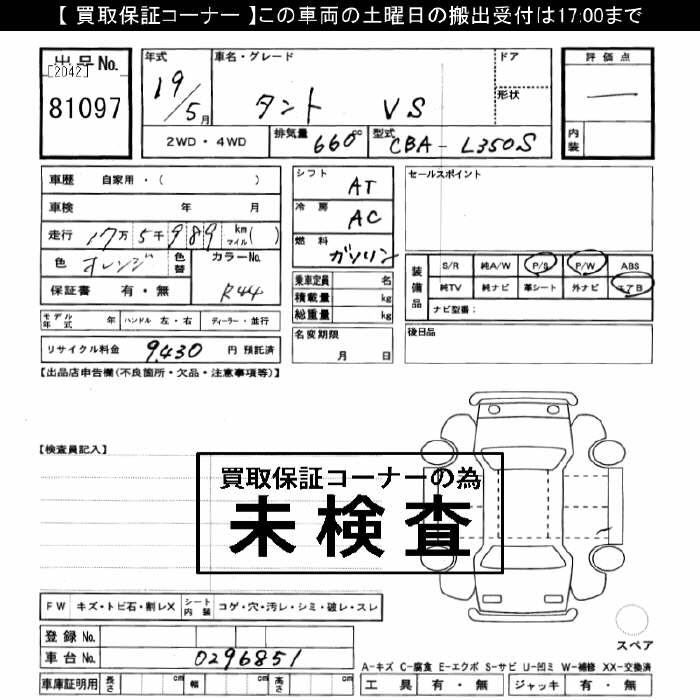 【 買取保証コーナー 】この車両の土曜日の搬出受付は17:00まで
出品No.
[2042]
81097
年式
19/5月
車名・グレード
タント VS
ドア
形状
評価点
—
内装
2WD・4WD
排気量 660cc
型式 CBA-L350S
車歴 自家用・( )
車検 年 月
走行 17万5千989 km マイル( )
色 オレンジ
色替
カラーNo.
R44
保証書 有・無
モデル年式 年
ハンドル 左・右
ディーラー・並行
リサイクル料金 9,430 円 預託済
シフト AT
冷房 AC
燃料 ガソリン
乗車定員 名
積載量 kg
総重量 kg
名変期限
月 日
セールスポイント
装備品
S/R 純A/W P/S P/W ABS
純TV 純ナビ 革シート 外ナビ エアB
ナビ型番:
後日品
【出品店申告欄(不良箇所・欠品・注意事項等)】
【検査員記入】
買取保証コーナーの為
未検査
FW キズ・トビ石・割レX
シート内装 コゲ・穴・汚レ・シミ・破レ・スレ
登録No.
車台No. 0296851
車庫証明用 長さ cm 幅 cm 高さ cm
スペア
A-キズ C-腐食 E-エクボ S-サビ U-凹ミ W-補修 XX-交換済
工具 有・無 ジャッキ 有・無